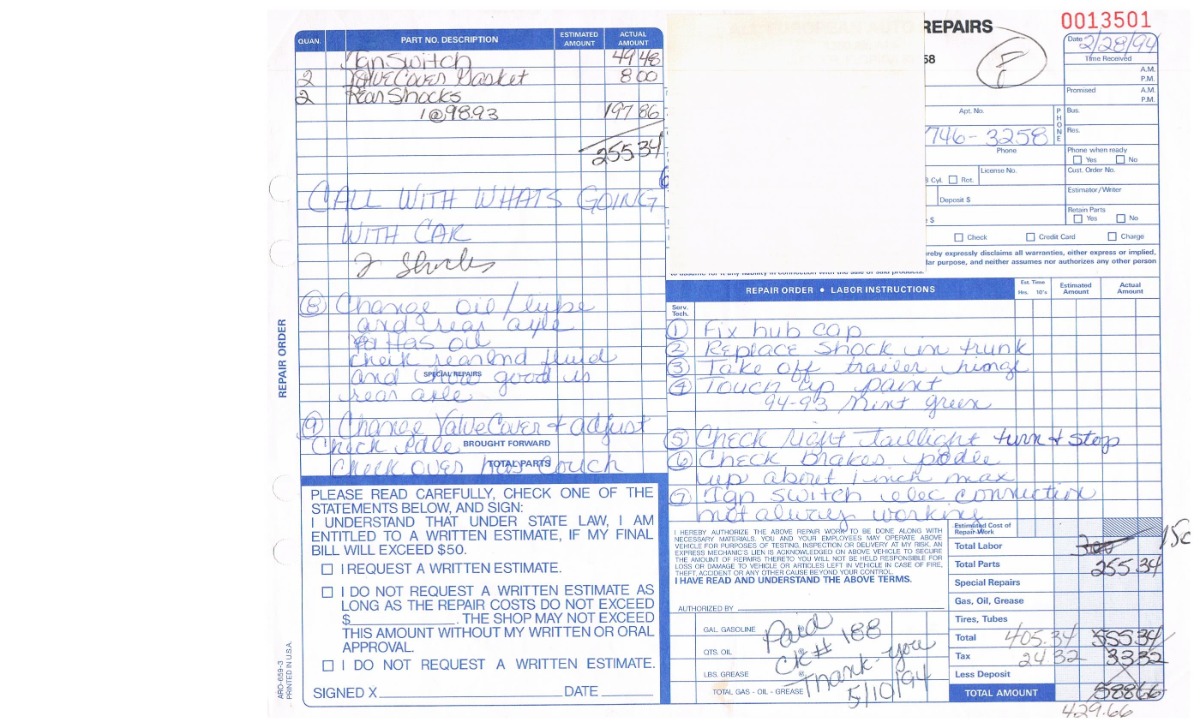 REPAIRS
0013501
58
Date 2/28/94
Time Received
A.M.
P.M.
Promised A.M.
P.M.
Apt. No. PHONE Bus.
746-3258 Res.
Phone Phone when ready
Yes No
License No. Cust. Order No.
Cyl. Ret.
Deposit $ Estimator/Writer
Retain Parts
Yes No
Check Credit Card Charge
reby expressly disclaims all warranties, either express or implied,
lar purpose, and neither assumes nor authorizes any other person
QUAN. PART NO. DESCRIPTION ESTIMATED AMOUNT ACTUAL AMOUNT
Ign Switch 49 48
2 Valve Cover Gasket 8 00
2 Rear Shocks
1@98.93 197 86
255.34
CALL WITH WHATS GOING
WITH CAR
2 Shocks
⑧ Change oil/lube
and rear axle
Has oil
check rearend fluid
SPECIAL REPAIRS
and good is
rear axle
⑨ Change Valve Cover + adjust
Check idle BROUGHT FORWARD
Check over TOTAL PARTS
REPAIR ORDER
PLEASE READ CAREFULLY, CHECK ONE OF THE
STATEMENTS BELOW, AND SIGN:
I UNDERSTAND THAT UNDER STATE LAW, I AM
ENTITLED TO A WRITTEN ESTIMATE, IF MY FINAL
BILL WILL EXCEED $50.
I REQUEST A WRITTEN ESTIMATE.
I DO NOT REQUEST A WRITTEN ESTIMATE AS
LONG AS THE REPAIR COSTS DO NOT EXCEED
$ . THE SHOP MAY NOT EXCEED
THIS AMOUNT WITHOUT MY WRITTEN OR ORAL
APPROVAL.
I DO NOT REQUEST A WRITTEN ESTIMATE.
SIGNED X DATE
ARO-659-3
PRINTED IN U.S.A.
REPAIR ORDER • LABOR INSTRUCTIONS Est. Time Hrs. 10's Estimated Amount Actual Amount
Serv. Tech.
① Fix hub cap
② Replace Shock in trunk
③ Take off trailer hinge
④ Touch up paint
94-93 Mint green
⑤ Check right taillight turn + stop
⑥ Check brakes podle
up about 1 inch max
⑦ Ign switch elec connection
not always working
I HEREBY AUTHORIZE THE ABOVE REPAIR WORK TO BE DONE ALONG WITH
NECESSARY MATERIALS. YOU AND YOUR EMPLOYEES MAY OPERATE ABOVE
VEHICLE FOR PURPOSES OF TESTING, INSPECTION OR DELIVERY AT MY RISK. AN
EXPRESS MECHANIC'S LIEN IS ACKNOWLEDGED ON ABOVE VEHICLE TO SECURE
THE AMOUNT OF REPAIRS THERETO. YOU WILL NOT BE HELD RESPONSIBLE FOR
LOSS OR DAMAGE TO VEHICLE OR ARTICLES LEFT IN VEHICLE IN CASE OF FIRE,
THEFT, ACCIDENT OR ANY OTHER CAUSE BEYOND YOUR CONTROL.
I HAVE READ AND UNDERSTAND THE ABOVE TERMS.
AUTHORIZED BY
GAL. GASOLINE
QTS. OIL
LBS. GREASE
TOTAL GAS - OIL - GREASE
Paid
CK# 188
Thank-you
5/10/94
Estimated Cost of Repair Work
Total Labor 300 150
Total Parts 255.34
Special Repairs
Gas, Oil, Grease
Tires, Tubes
Total 405.34 555.34
Tax 24 32 33.32
Less Deposit
TOTAL AMOUNT 588 66
429.66